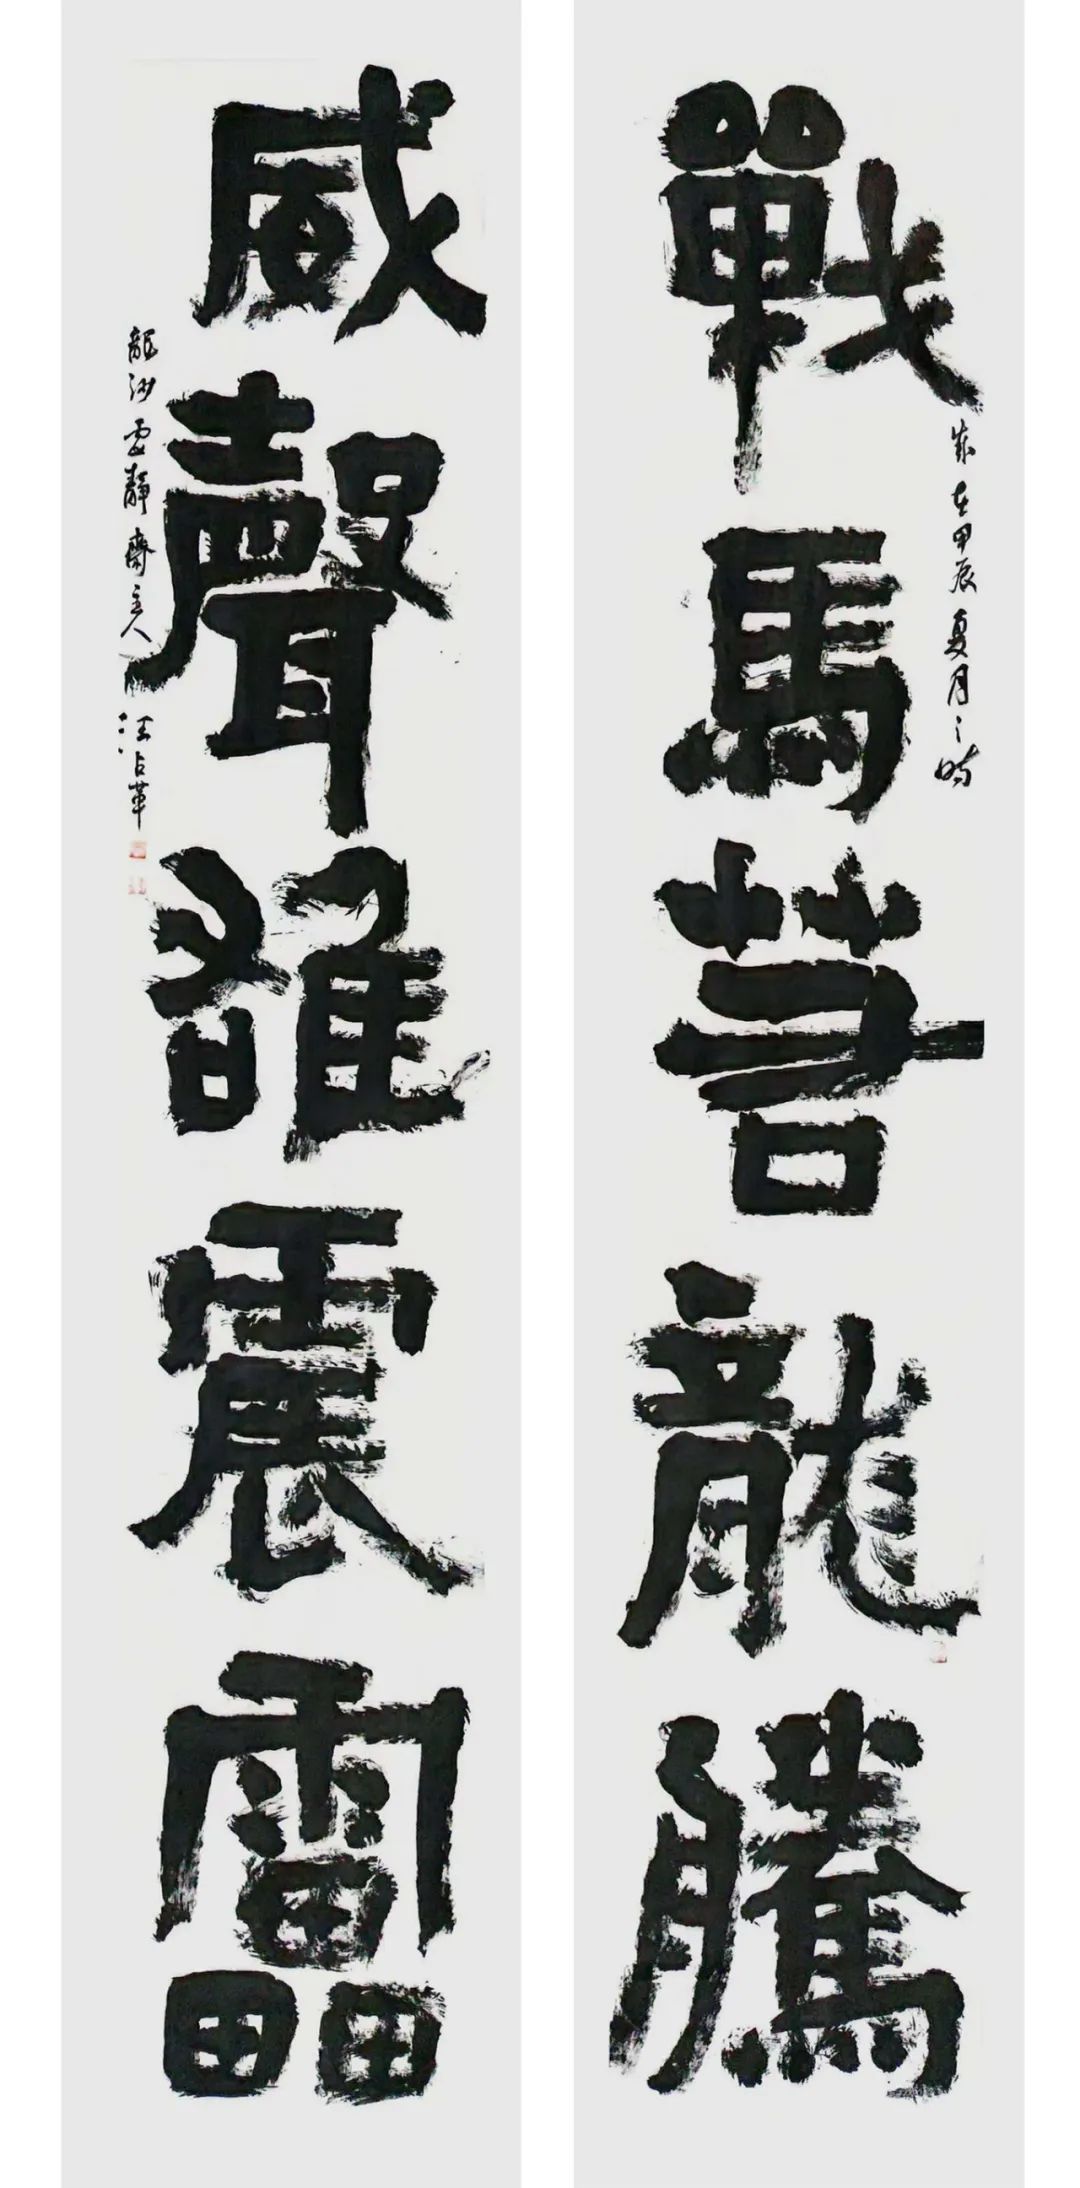 戰馬若龍騰
歲在甲辰夏月之時
威聲雒震靁
龍沙雲靜齋主人
汪占革